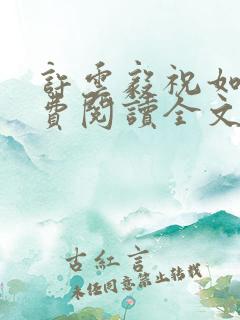 許雲毅祝如
費閱讀全文
古紅言
未經同意禁止轉載